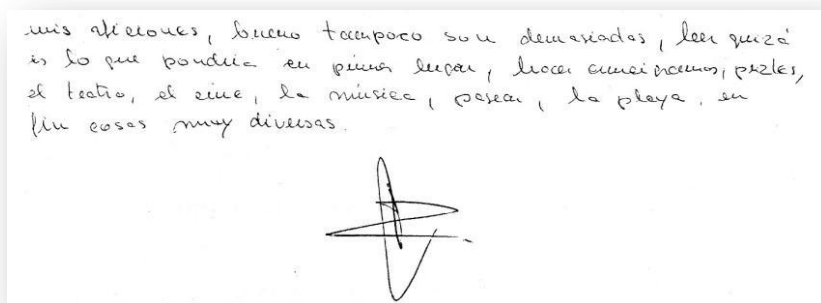 mis aficiones, bueno tampoco son demasiadas, leer quizá
es lo que pondria en primer lugar, hacer crucigramas, puzles,
el teatro, el cine, la música, pasear, la playa, en
fin cosas muy diversas.